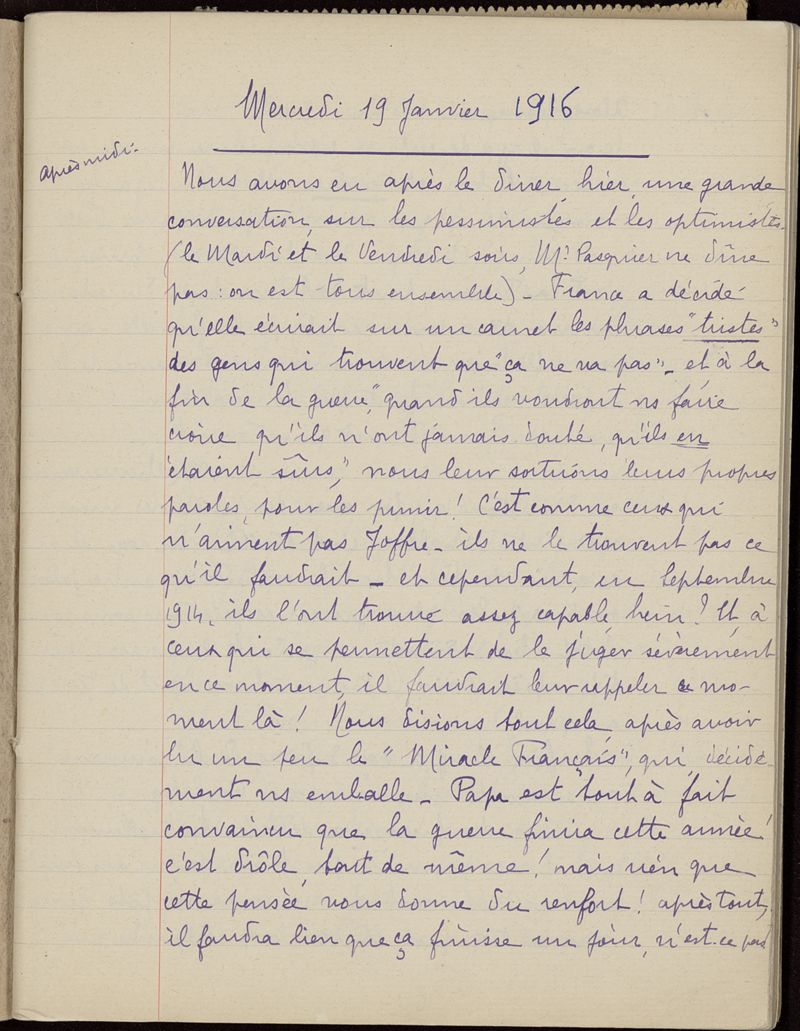 Mercredi 19 Janvier 1916
Après midi.
Nous avons eu après le dîner, hier, une grande
conversation, sur les pessimistes et les optimistes.
(le Mardi et le Vendredi soirs, Mr Pasquier ne dîne
pas : on est tous ensemble) - France a décidé
qu'elle écrirait sur un carnet les phrases "tristes"
des gens qui trouvent que "ça ne va pas" - et à la
fin de la guerre, "quand ils voudront ns faire
croire qu'ils n'ont jamais douté, qu'ils en
étaient sûrs," nous leur sortirons leurs propres
paroles, pour les punir ! C'est comme ceux qui
n'aiment pas Joffre - ils ne le trouvent pas ce
qu'il faudrait - et cependant, en Septembre
1914, ils l'ont trouvé assez capable, hein ? Et à
ceux qui se permettent de le juger sévèrement
en ce moment, il faudrait leur rappeler ce mo-
ment là ! Nous disions tout cela, après avoir
lu un peu le "Miracle Français", qui, décidé-
ment ns emballe - Papa est tout à fait
convaincu que la guerre finira cette année !
c'est drôle, tout de même ! mais rien que
cette pensée vous donne du renfort ! après tout,
il faudra bien que ça finisse un jour, n'est-ce pas